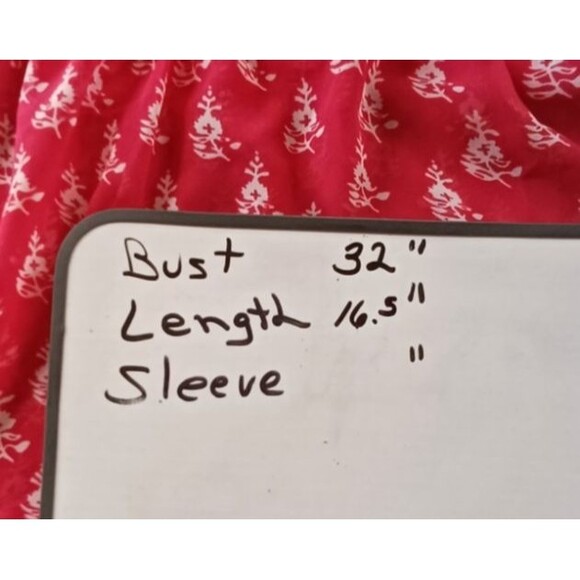 Bust 32"
Length 16.5"
Sleeve "